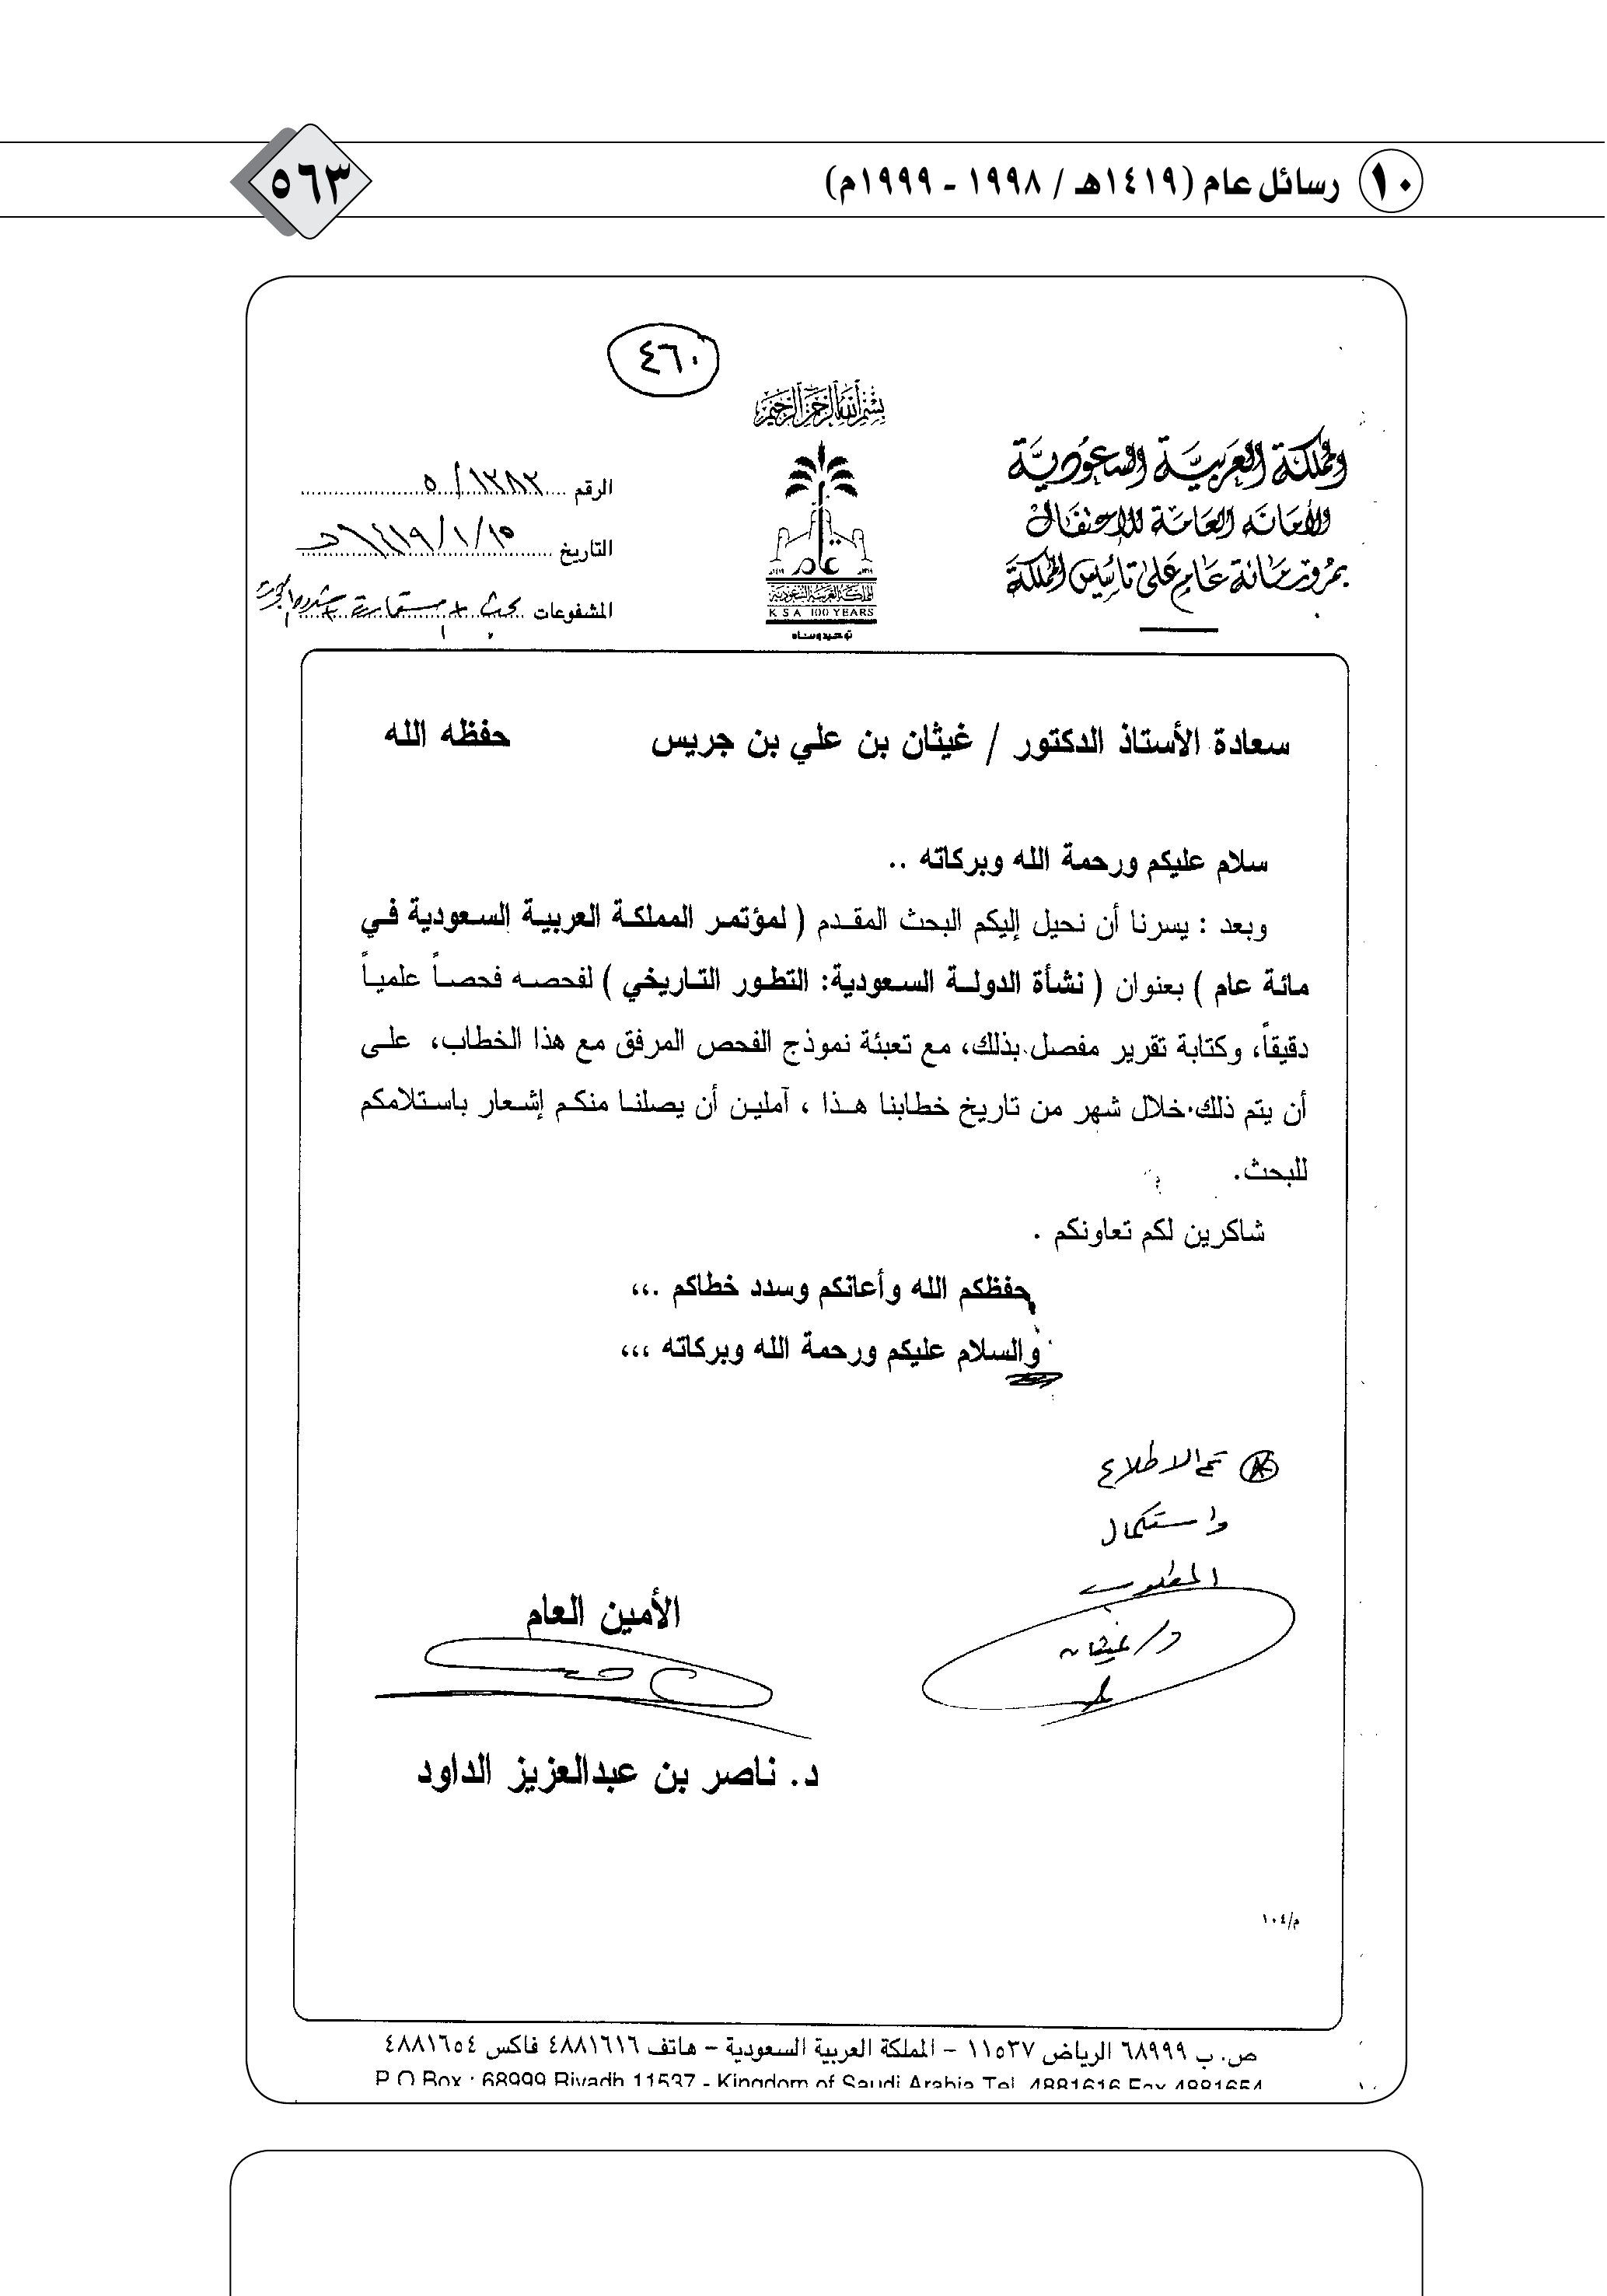 ١٠ رسائل عام (١٤١٩هـ / ١٩٩٨ - ١٩٩٩م)
٥٦٣
٤٦٠
بسم الله الرحمن الرحيم
المملكة العربية السعودية
الأمانة العامة للاحتفال
بمرور مائة عام على تأسيس المملكة
عام
المملكة العربية السعودية
KSA 100 YEARS
توحيد وبناء
الرقم ١٣٨٢/٥
التاريخ ١٥/١/١٤١٩هـ
المشفوعات بحث + استمارة +
سعادة الأستاذ الدكتور / غيثان بن علي بن جريس حفظه الله
سلام عليكم ورحمة الله وبركاته ..
وبعد : يسرنا أن نحيل إليكم البحث المقدم ( لمؤتمر المملكة العربية السعودية في
مائة عام ) بعنوان ( نشأة الدولة السعودية: التطور التاريخي ) لفحصه فحصاً علمياً
دقيقاً، وكتابة تقرير مفصل بذلك، مع تعبئة نموذج الفحص المرفق مع هذا الخطاب، على
أن يتم ذلك خلال شهر من تاريخ خطابنا هذا ، آملين أن يصلنا منكم إشعار باستلامكم
للبحث.
شاكرين لكم تعاونكم .
حفظكم الله وأعانكم وسدد خطاكم .،،
والسلام عليكم ورحمة الله وبركاته ،،،
تم الاطلاع
واستكمال
المطلوب
د/ غيثان
الأمين العام
د. ناصر بن عبدالعزيز الداود
م/١٠٤
ص. ب ٦٨٩٩٩ الرياض ١١٥٣٧ - المملكة العربية السعودية - هاتف ٤٨٨١٦١٦ فاكس ٤٨٨١٦٥٤
P.O.Box : 68999 Riyadh 11537 - Kingdom of Saudi Arabia Tel. 4881616 Fax 4881654